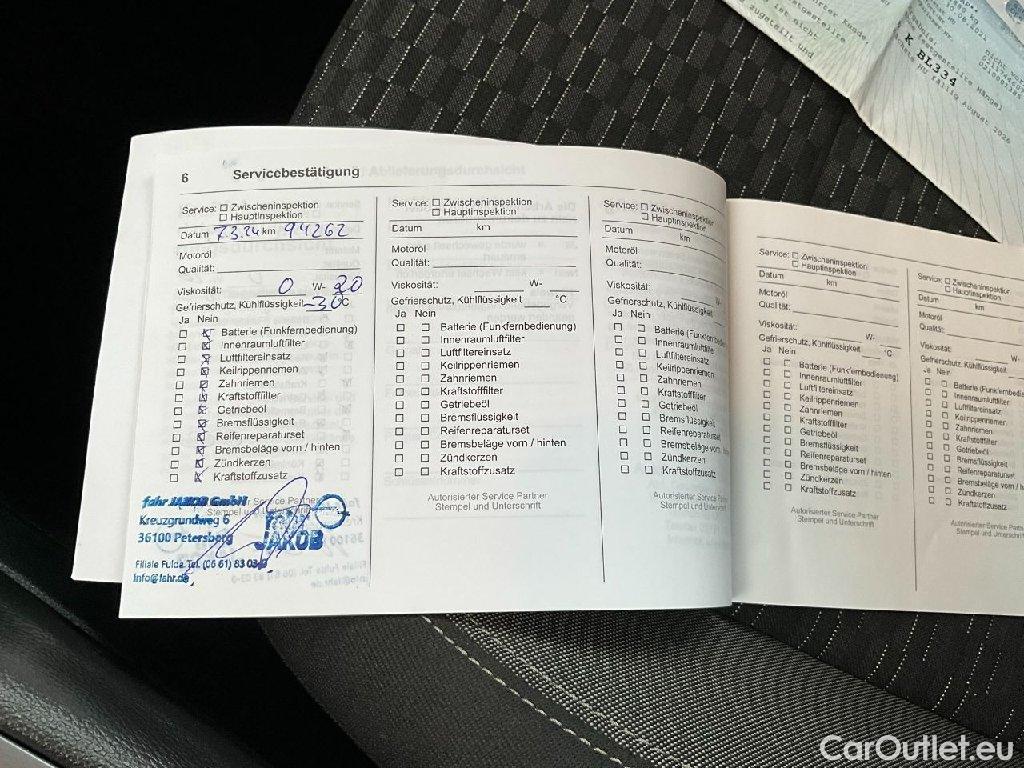 6 Servicebestätigung
Service: Zwischeninspektion
Hauptinspektion
Datum 7.3.24 km 94262
Motoröl
Qualität:
Viskosität: 0 W- 20
Gefrierschutz, Kühlflüssigkeit -30 °C
Ja Nein
Batterie (Funkfernbedienung)
Innenraumluftfilter
Luftfiltereinsatz
Keilrippenriemen
Zahnriemen
Kraftstofffilter
Getriebeöl
Bremsflüssigkeit
Reifenreparaturset
Bremsbeläge vorn / hinten
Zündkerzen
Kraftstoffzusatz
Service
Stempel und
fahr JAKOB GmbH
Kreuzgrundweg 6
36100 Petersberg
Filiale Fulda Tel. (06 61) 83 03-
info@fahr.de
fahr
JAKOB
Service: Zwischeninspektion
Hauptinspektion
Datum km
Motoröl
Qualität:
Viskosität: W-
Gefrierschutz, Kühlflüssigkeit °C
Ja Nein
Batterie (Funkfernbedienung)
Innenraumluftfilter
Luftfiltereinsatz
Keilrippenriemen
Zahnriemen
Kraftstofffilter
Getriebeöl
Bremsflüssigkeit
Reifenreparaturset
Bremsbeläge vorn / hinten
Zündkerzen
Kraftstoffzusatz
Autorisierter Service Partner
Stempel und Unterschrift
Service: Zwischeninspektion
Hauptinspektion
Datum km
Motoröl
Qualität:
Viskosität: W-
Gefrierschutz, Kühlflüssigkeit
Ja Nein
Batterie (Funkfernbedien
Innenraumluftfilter
Luftfiltereinsatz
Keilrippenriemen
Zahnriemen
Kraftstofffilter
Getriebeöl
Bremsflüssigkeit
Reifenreparaturset
Bremsbeläge vorn / hinten
Zündkerzen
Kraftstoffzusatz
Autorisierter Service Partner
Stempel und Unterschrift
Service: Zwischeninspektion
Hauptinspektion
Datum km
Motoröl
Qualität:
Viskosität: W-
Gefrierschutz, Kühlflüssigkeit °C
Ja Nein
Batterie (Funkfernbedienung)
Innenraumluftfilter
Luftfiltereinsatz
Keilrippenriemen
Zahnriemen
Kraftstofffilter
Getriebeöl
Bremsflüssigkeit
Reifenreparaturset
Bremsbeläge vorn / hinten
Zündkerzen
Kraftstoffzusatz
Autorisierter Service Partner
Stempel und Unterschrift
Service: Zwischeninspektion
Hauptinspektion
Datum km
Motoröl
Qualität:
Viskosität: W-
Gefrierschutz, Kühlflüssigkeit
Ja Nein
Batterie (Funkfernbedienung)
Innenraumluftfilter
Luftfiltereinsatz
Keilrippenriemen
Zahnriemen
Kraftstofffilter
Getriebeöl
Bremsflüssigkeit
Reifenreparaturset
Bremsbeläge vorn / hinten
Zündkerzen
Kraftstoffzusatz
Autorisierter Service Partner
Stempel und Unterschrift
ist nicht
und
K BL334
Mängel
fällig August 2026
CarOutlet.eu